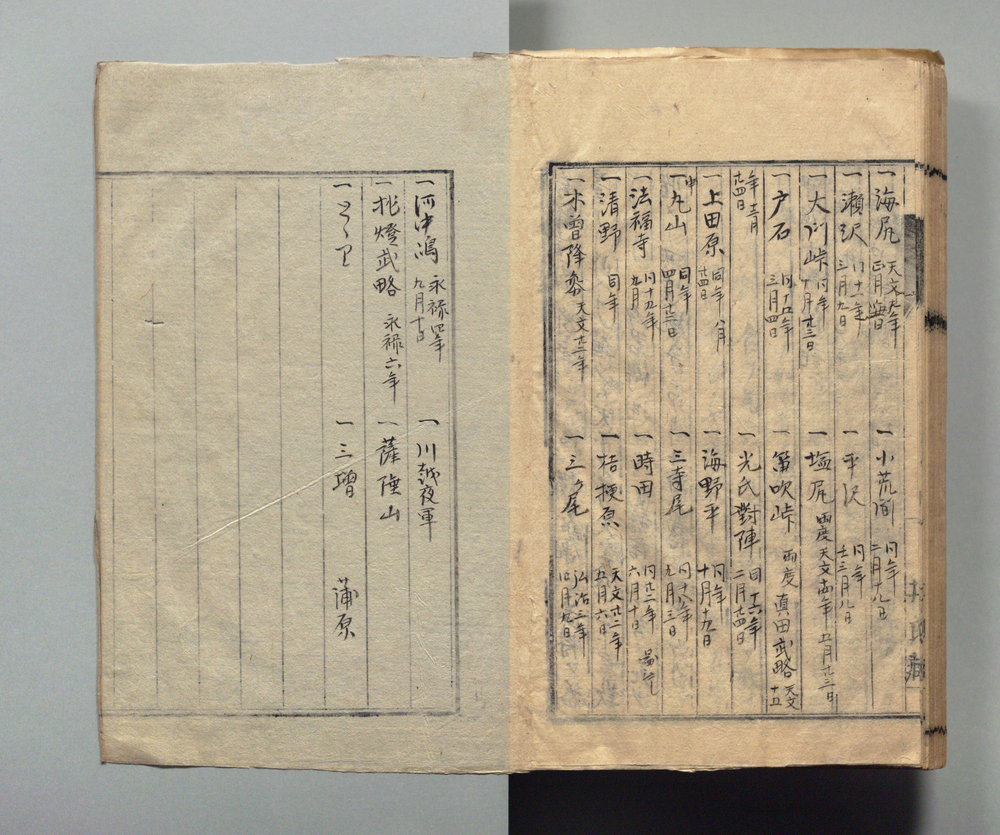 一海尻 天文九年 正月晦日 一小荒間 同年 二月十八日
一瀬沢 同十一年 三月九日 一平沢 同年 十二月八日
一大門峠 同年 十月廿三日 一塩尻 両度 天文十四年 五月廿三日
一戸石 同十四年 三月四日 一笛吹峠 両度 真田武略 天文十五
年十一月 廿四日 一光氏對陣 同十六年 二月廿四日
一上田原 同年 八月 廿四日 一海野平 同年 十月十九日
一丸山 同年 四月廿三日 一三寺尾 同十八年 九月三日
一法福寺 同十九年 九月 一時田 同廿一年 六月十日
一清野 同年 一桔梗原 天文廿二年 五月六日
一木曽降参 天文廿二年 一三ヶ尾 弘治三年 四月九日
一河中嶋 永禄四年 九月十日 一川越夜軍
一挑燈武略 永禄六年 一薩陲山
一とゝり 一三増 蒲原